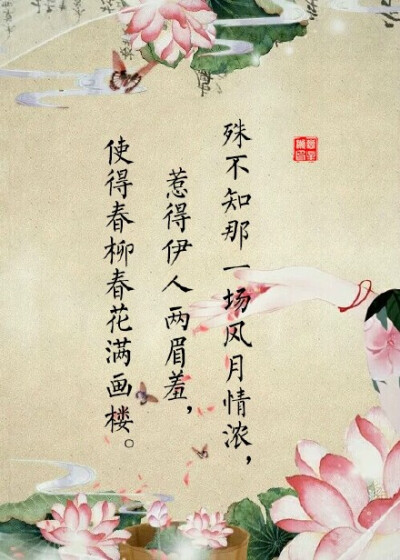 殊不知那一场风月情浓，
惹得伊人两眉羞，
使得春柳春花满画楼。